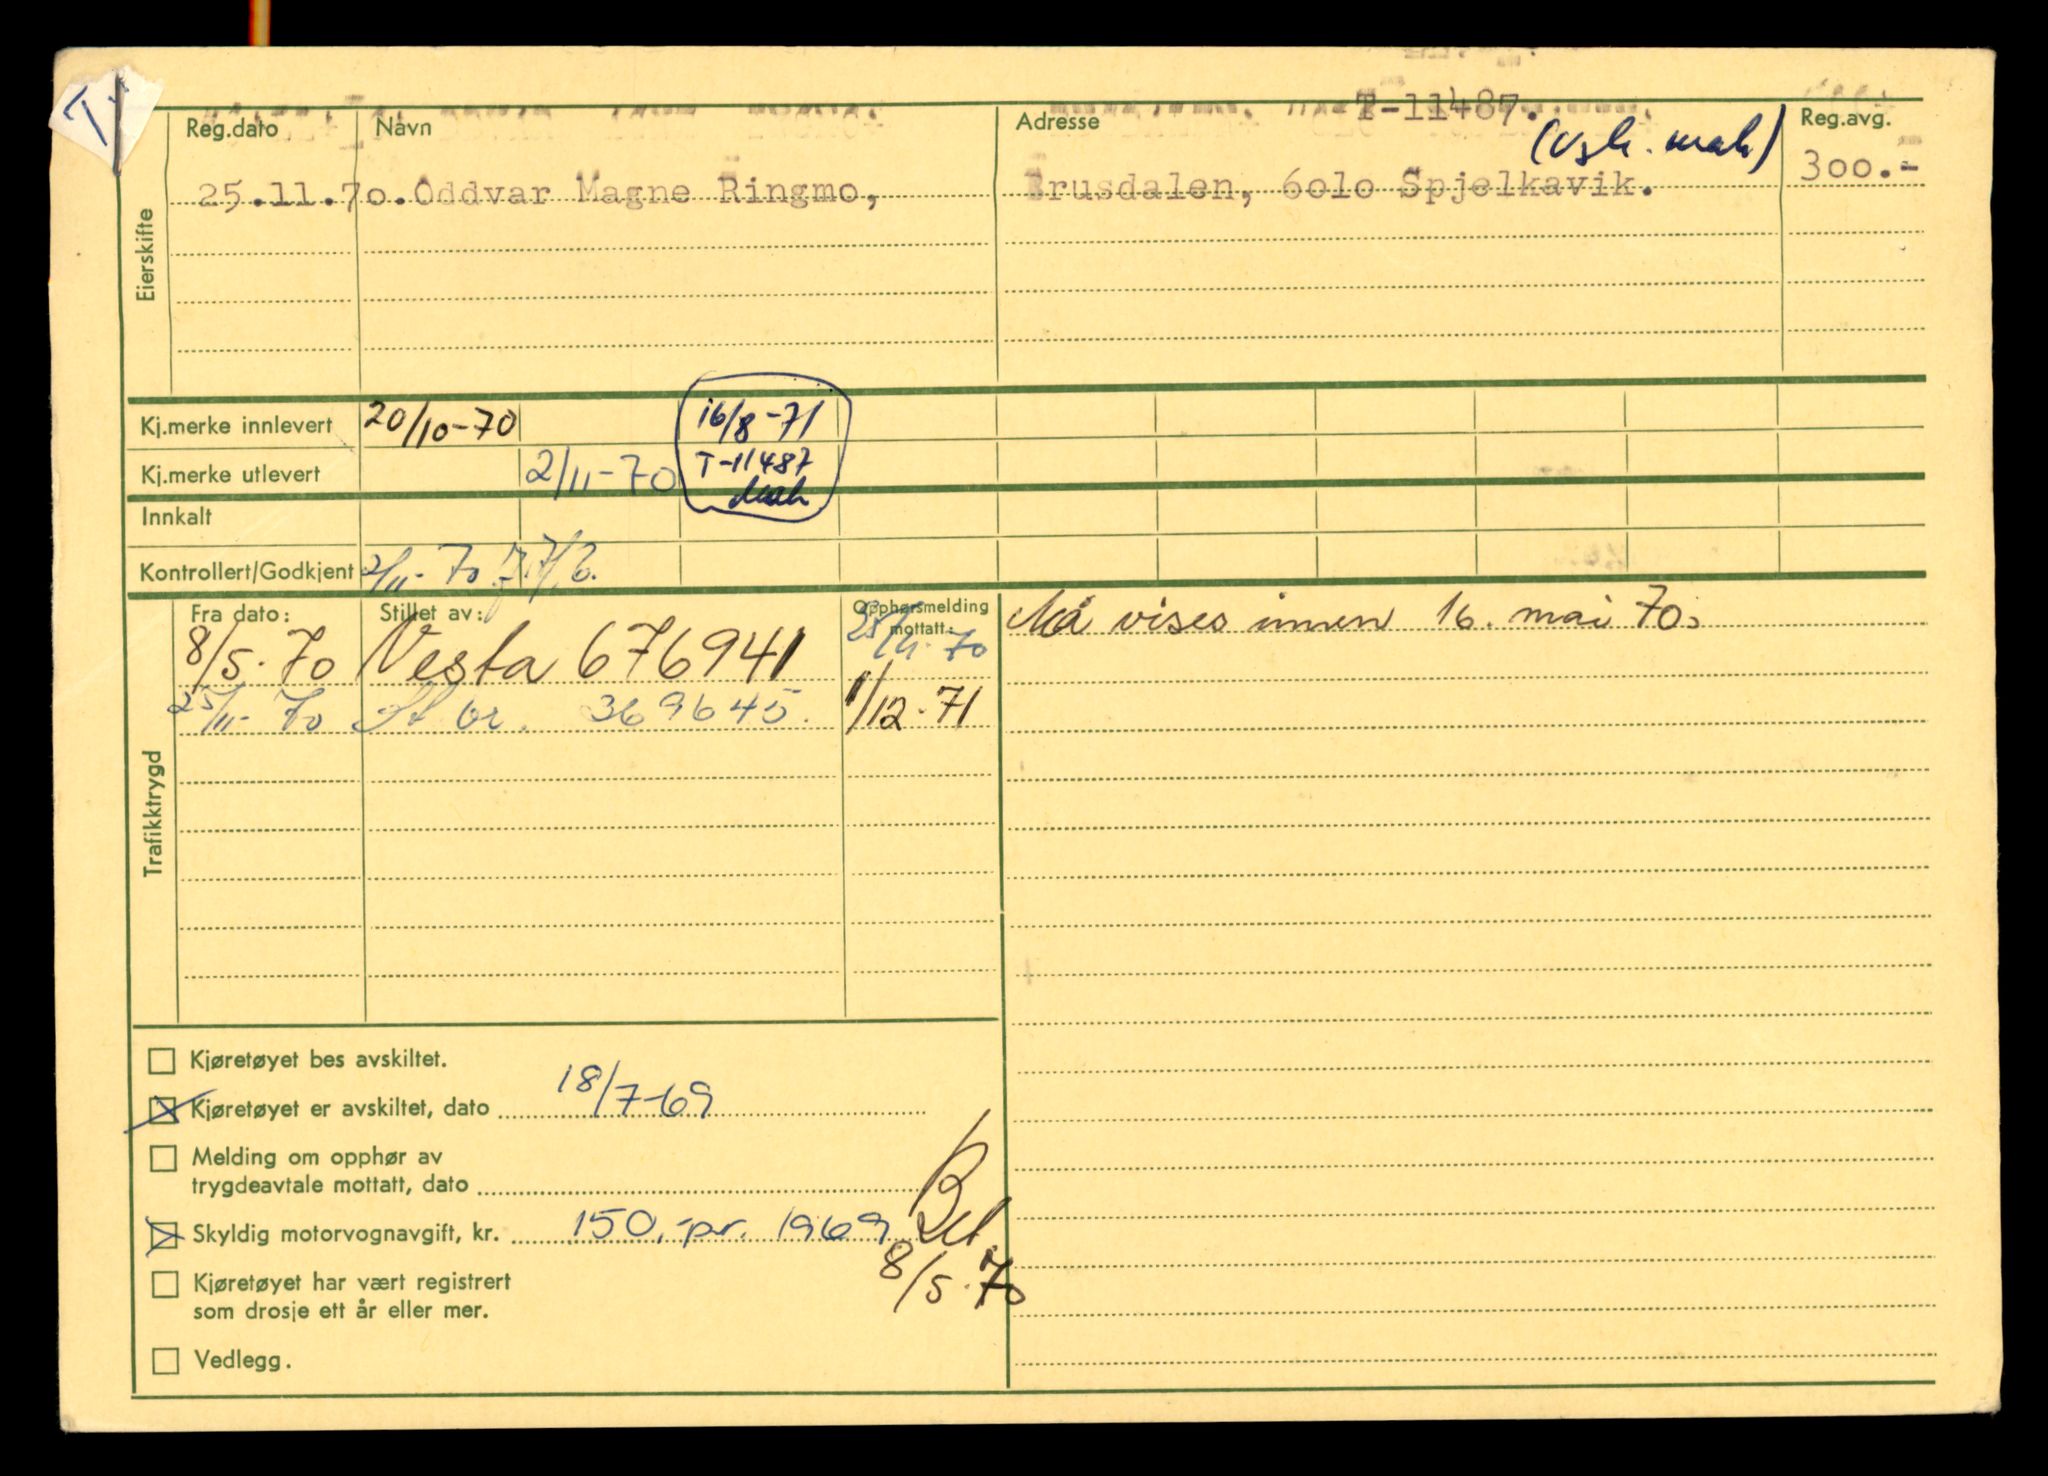 T-11487.
Reg.dato Navn Adresse Reg.avg.
25.11.70. Oddvar Magne Ringmo, Brusdalen, 6010 Spjelkavik. 300.-
Eierskifte
Kj.merke innlevert 20/10-70 16/8-71
Kj.merke utlevert 2/11-70 T-11487
Innkalt
Kontrollert/Godkjent 2/11-70
Trafikktrygd
Fra dato: Stillet av: Opphørsmelding mottatt:
8/5.70 Vesta 676941 25/11-70
25/11-70 St br. 369645. 1/12-71
Må vises innen 16. mai 70.
Kjøretøyet bes avskiltet.
Kjøretøyet er avskiltet, dato 18/7-69
Melding om opphør av
trygdeavtale mottatt, dato
Skyldig motorvognavgift, kr. 150,- pr. 1969 Bet.
8/5.70
Kjøretøyet har vært registrert
som drosje ett år eller mer.
Vedlegg.